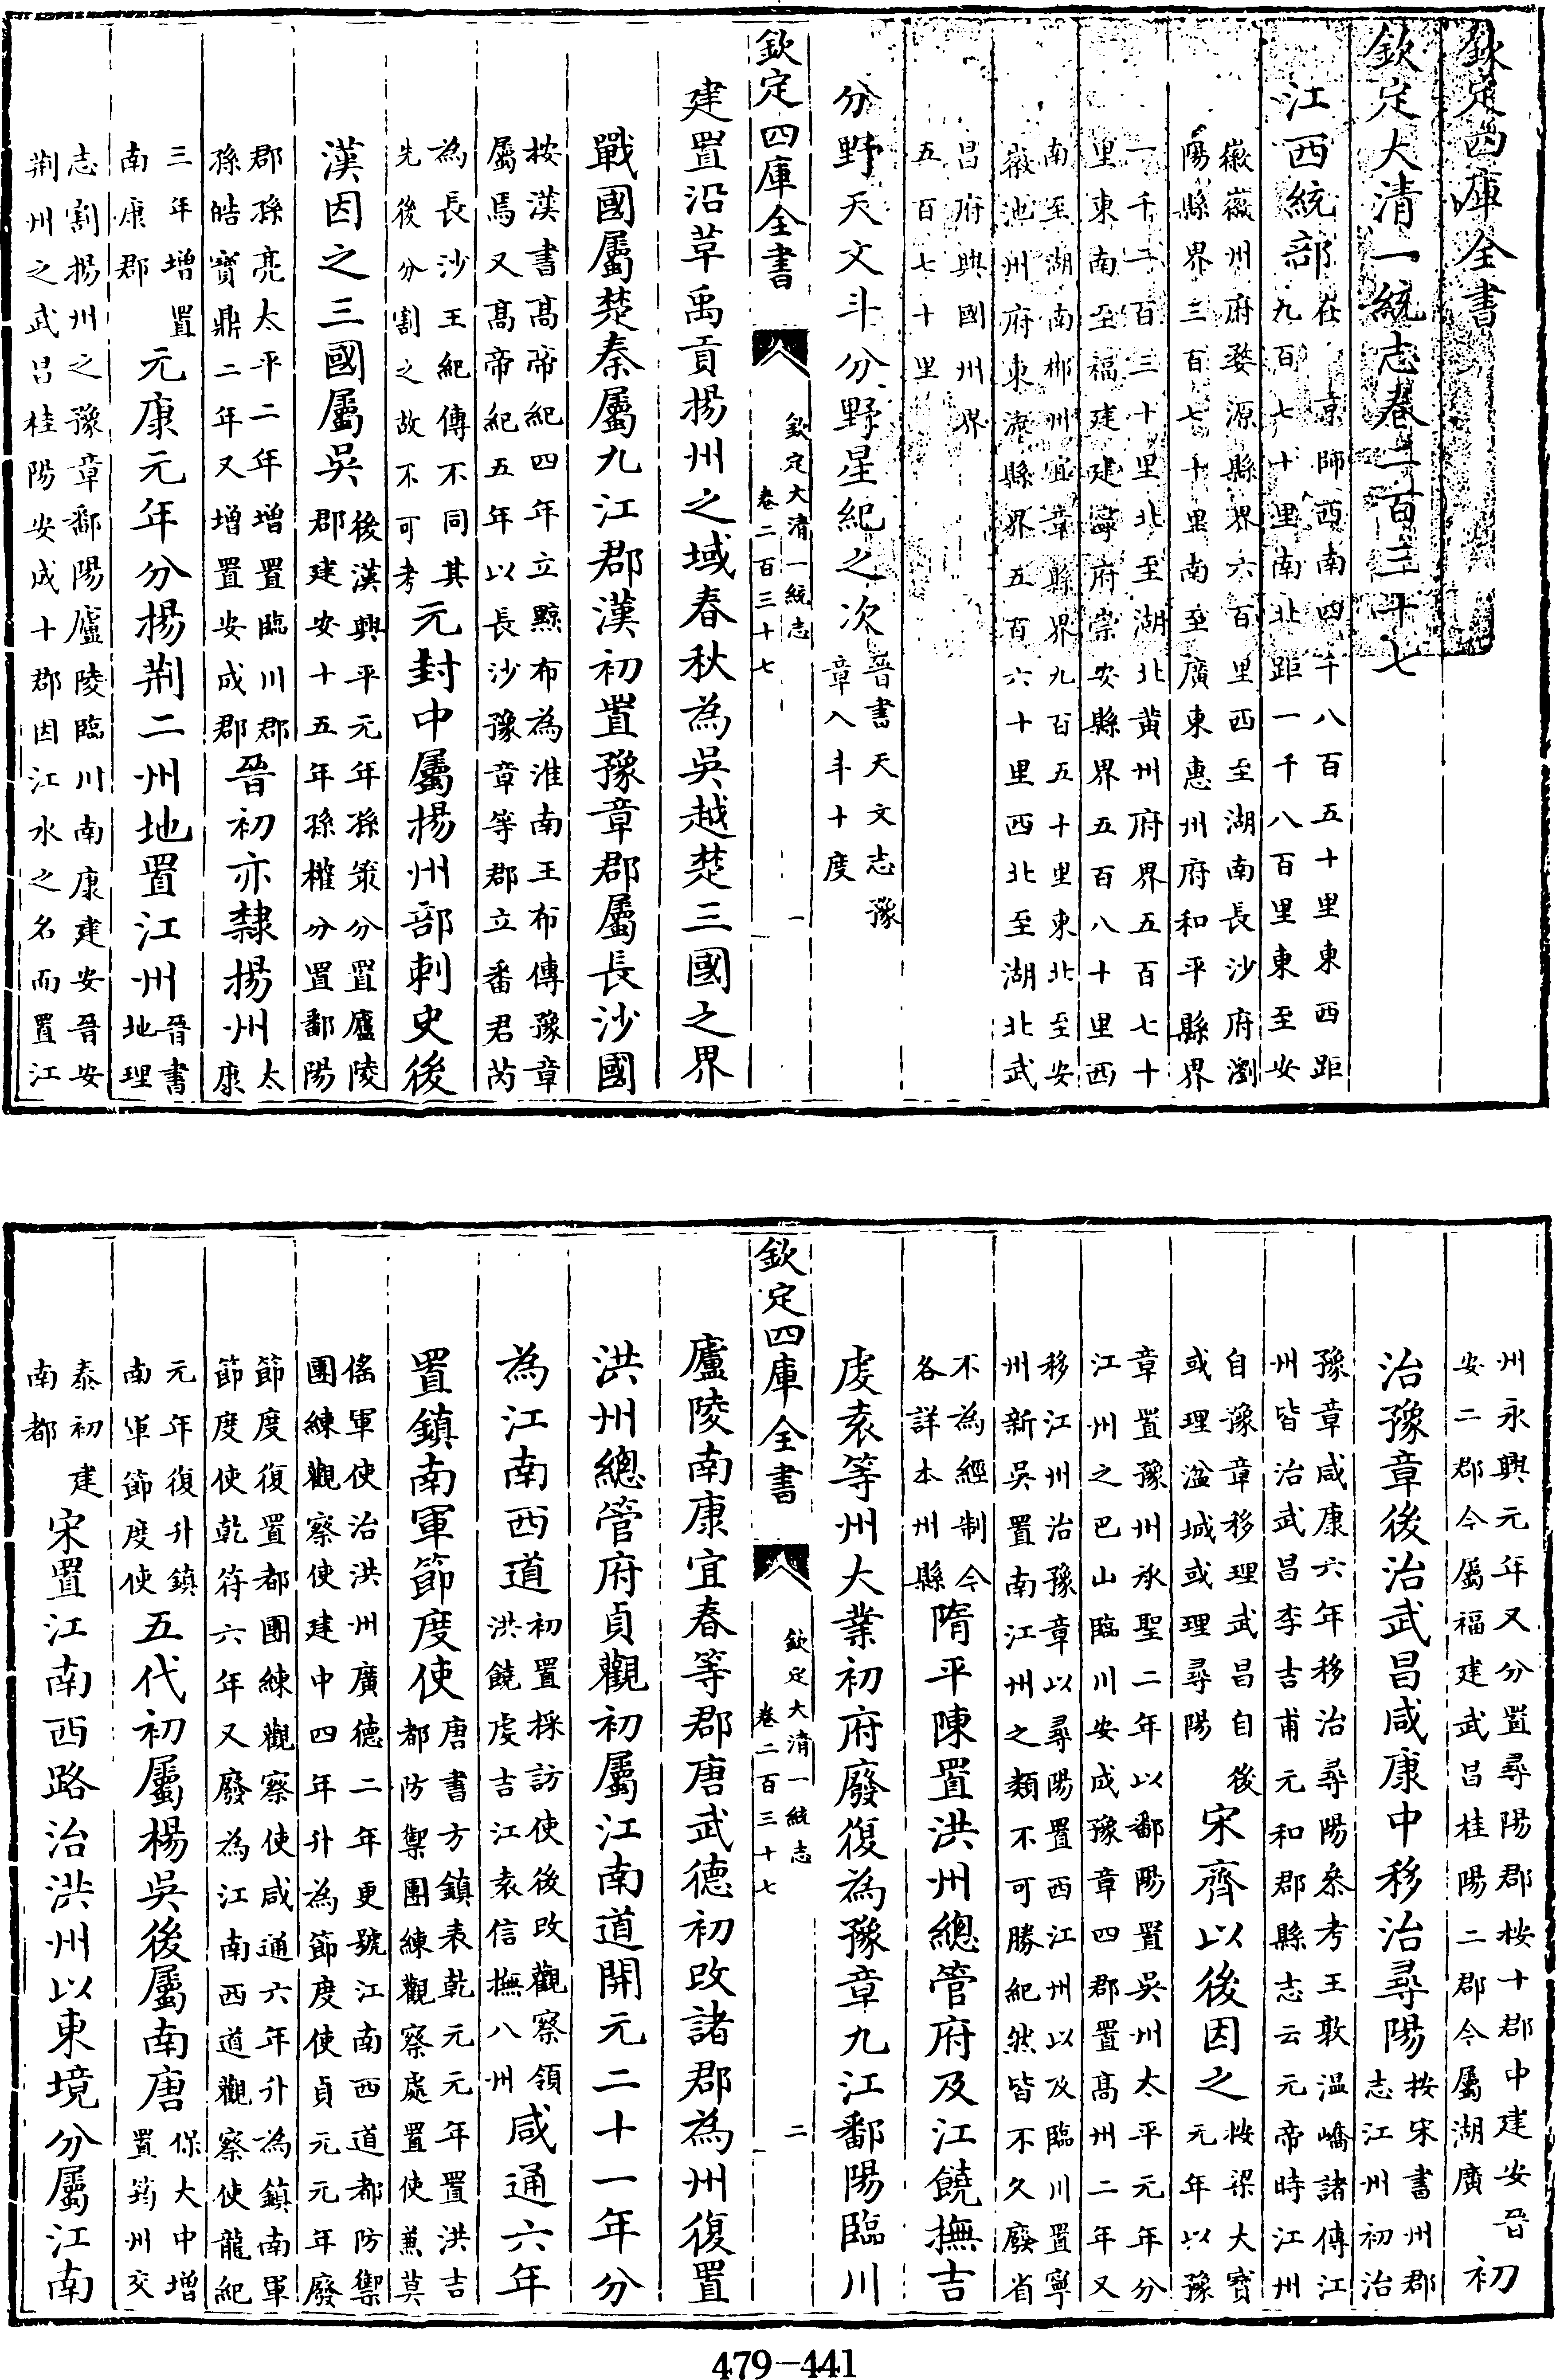 欽定四庫全書
欽定大清一統志卷二百三十七
江西統部在京師西南四千八百五十里東西距九百七十里南北距一千八百里東至安
徽徽州府婺源縣界六百里西至湖南長沙府瀏陽縣界三百七十里南至廣東惠州府和平縣界
一千二百三十里北至湖北黄州府界五百七十里東南至福建建寧府崇安縣界五百八十里西
南至湖南郴州宜章縣界九百五十里東北至安徽池州府東流縣界五百六十里西北至湖北武
昌府興國州界五百七十里
分野天文斗分野星紀之次晉書天文志豫章入斗十度
欽定四庫全書
欽定大清一統志
卷二百三十七
一
建置沿革禹貢揚州之域春秋為吳越楚三國之界
戰國屬楚秦屬九江郡漢初置豫章郡屬長沙國
按漢書高帝紀四年立黥布為淮南王布傳豫章屬焉又高帝紀五年以長沙豫章等郡立番君芮
為長沙王紀傳不同其先後分割之故不可考元封中屬揚州部刺史後
漢因之三國屬吳後漢興平元年孫策分置廬陵郡建安十五年孫權分置鄱陽
郡孫亮太平二年增置臨川郡孫皓寶鼎二年又增置安成郡晉初亦隸揚州太康
三年增置南康郡元康元年分揚荆二州地置江州晉書地理
志割揚州之豫章鄱陽廬陵臨川南康建安晉安荆州之武昌桂陽安成十郡因江水之名而置江
州永興元年又分置尋陽郡按十郡中建安晉安二郡今屬福建武昌桂陽二郡今屬湖廣初
治豫章後治武昌咸康中移治尋陽按宋書州郡志江州初治
豫章咸康六年移治尋陽叅考王敦温嶠諸傳江州皆治武昌李吉甫元和郡縣志云元帝時江州
自豫章移理武昌自後或理湓城或理尋陽宋齊以後因之按梁大寶元年以豫
章置豫州承聖二年以鄱陽置吳州太平元年分江州之巴山臨川安成豫章四郡置高州二年又
移江州治豫章以尋陽置西江州以及臨川置寧州新吳置南江州之類不可勝紀然皆不久廢省
不為經制今各詳本州縣隋平陳置洪州總管府及江饒撫吉
䖍袁等州大業初府廢復為豫章九江鄱陽臨川
欽定四庫全書
欽定大清一統志
卷二百三十七
二
廬陵南康宜春等郡唐武德初改諸郡為州復置
洪州總管府貞觀初屬江南道開元二十一年分
為江南西道初置採訪使後改觀察領洪饒䖍吉江袁信撫八州咸通六年
置鎮南軍節度使唐書方鎮表乾元元年置洪吉都防禦團練觀察處置使兼莫
傜軍使治洪州廣德二年更號江南西道都防禦團練觀察使建中四年升為節度使貞元元年廢
節度復置都團練觀察使咸通六年升為鎮南軍節度使乾符六年又廢為江南西道觀察使龍紀
元年復升鎮南軍節度使五代初屬楊吳後屬南唐保大中增置筠州交
泰初建南都宋置江南西路治洪州以東境分屬江南
479-441